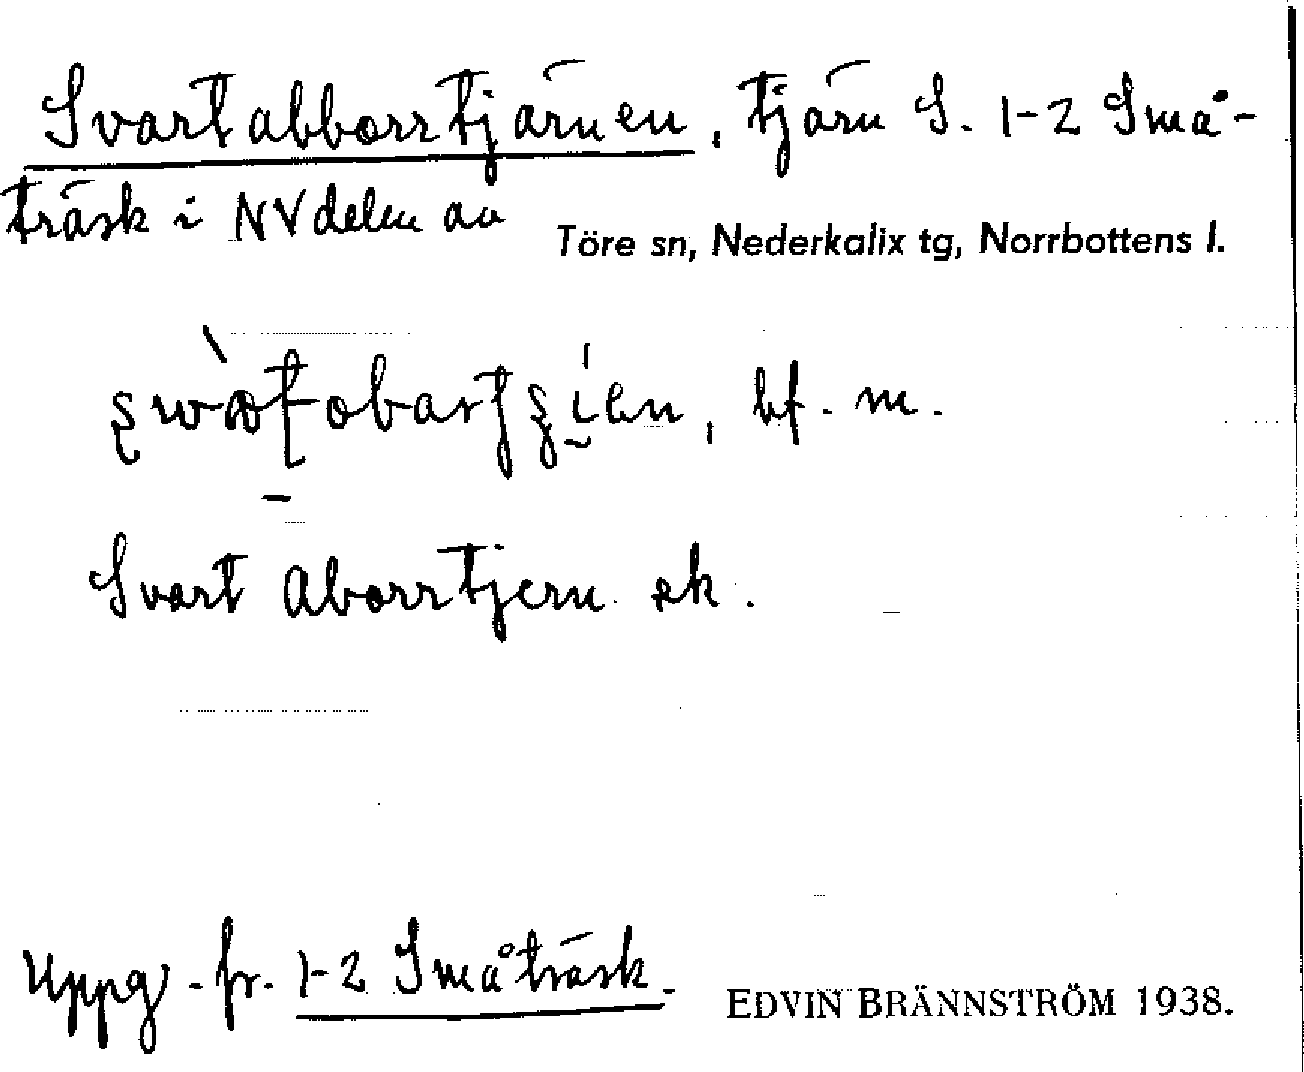 Svartabborrtjärnen, tjärn S. 1-2 Små-
träsk i NV delen av
Töre sn, Nederkalix tg, Norrbottens l.
bf. m.
Svart Aborrtjern ek.
Uppg. fr. 1-2 Småträsk.
EDVIN BRÄNNSTRÖM 1938.